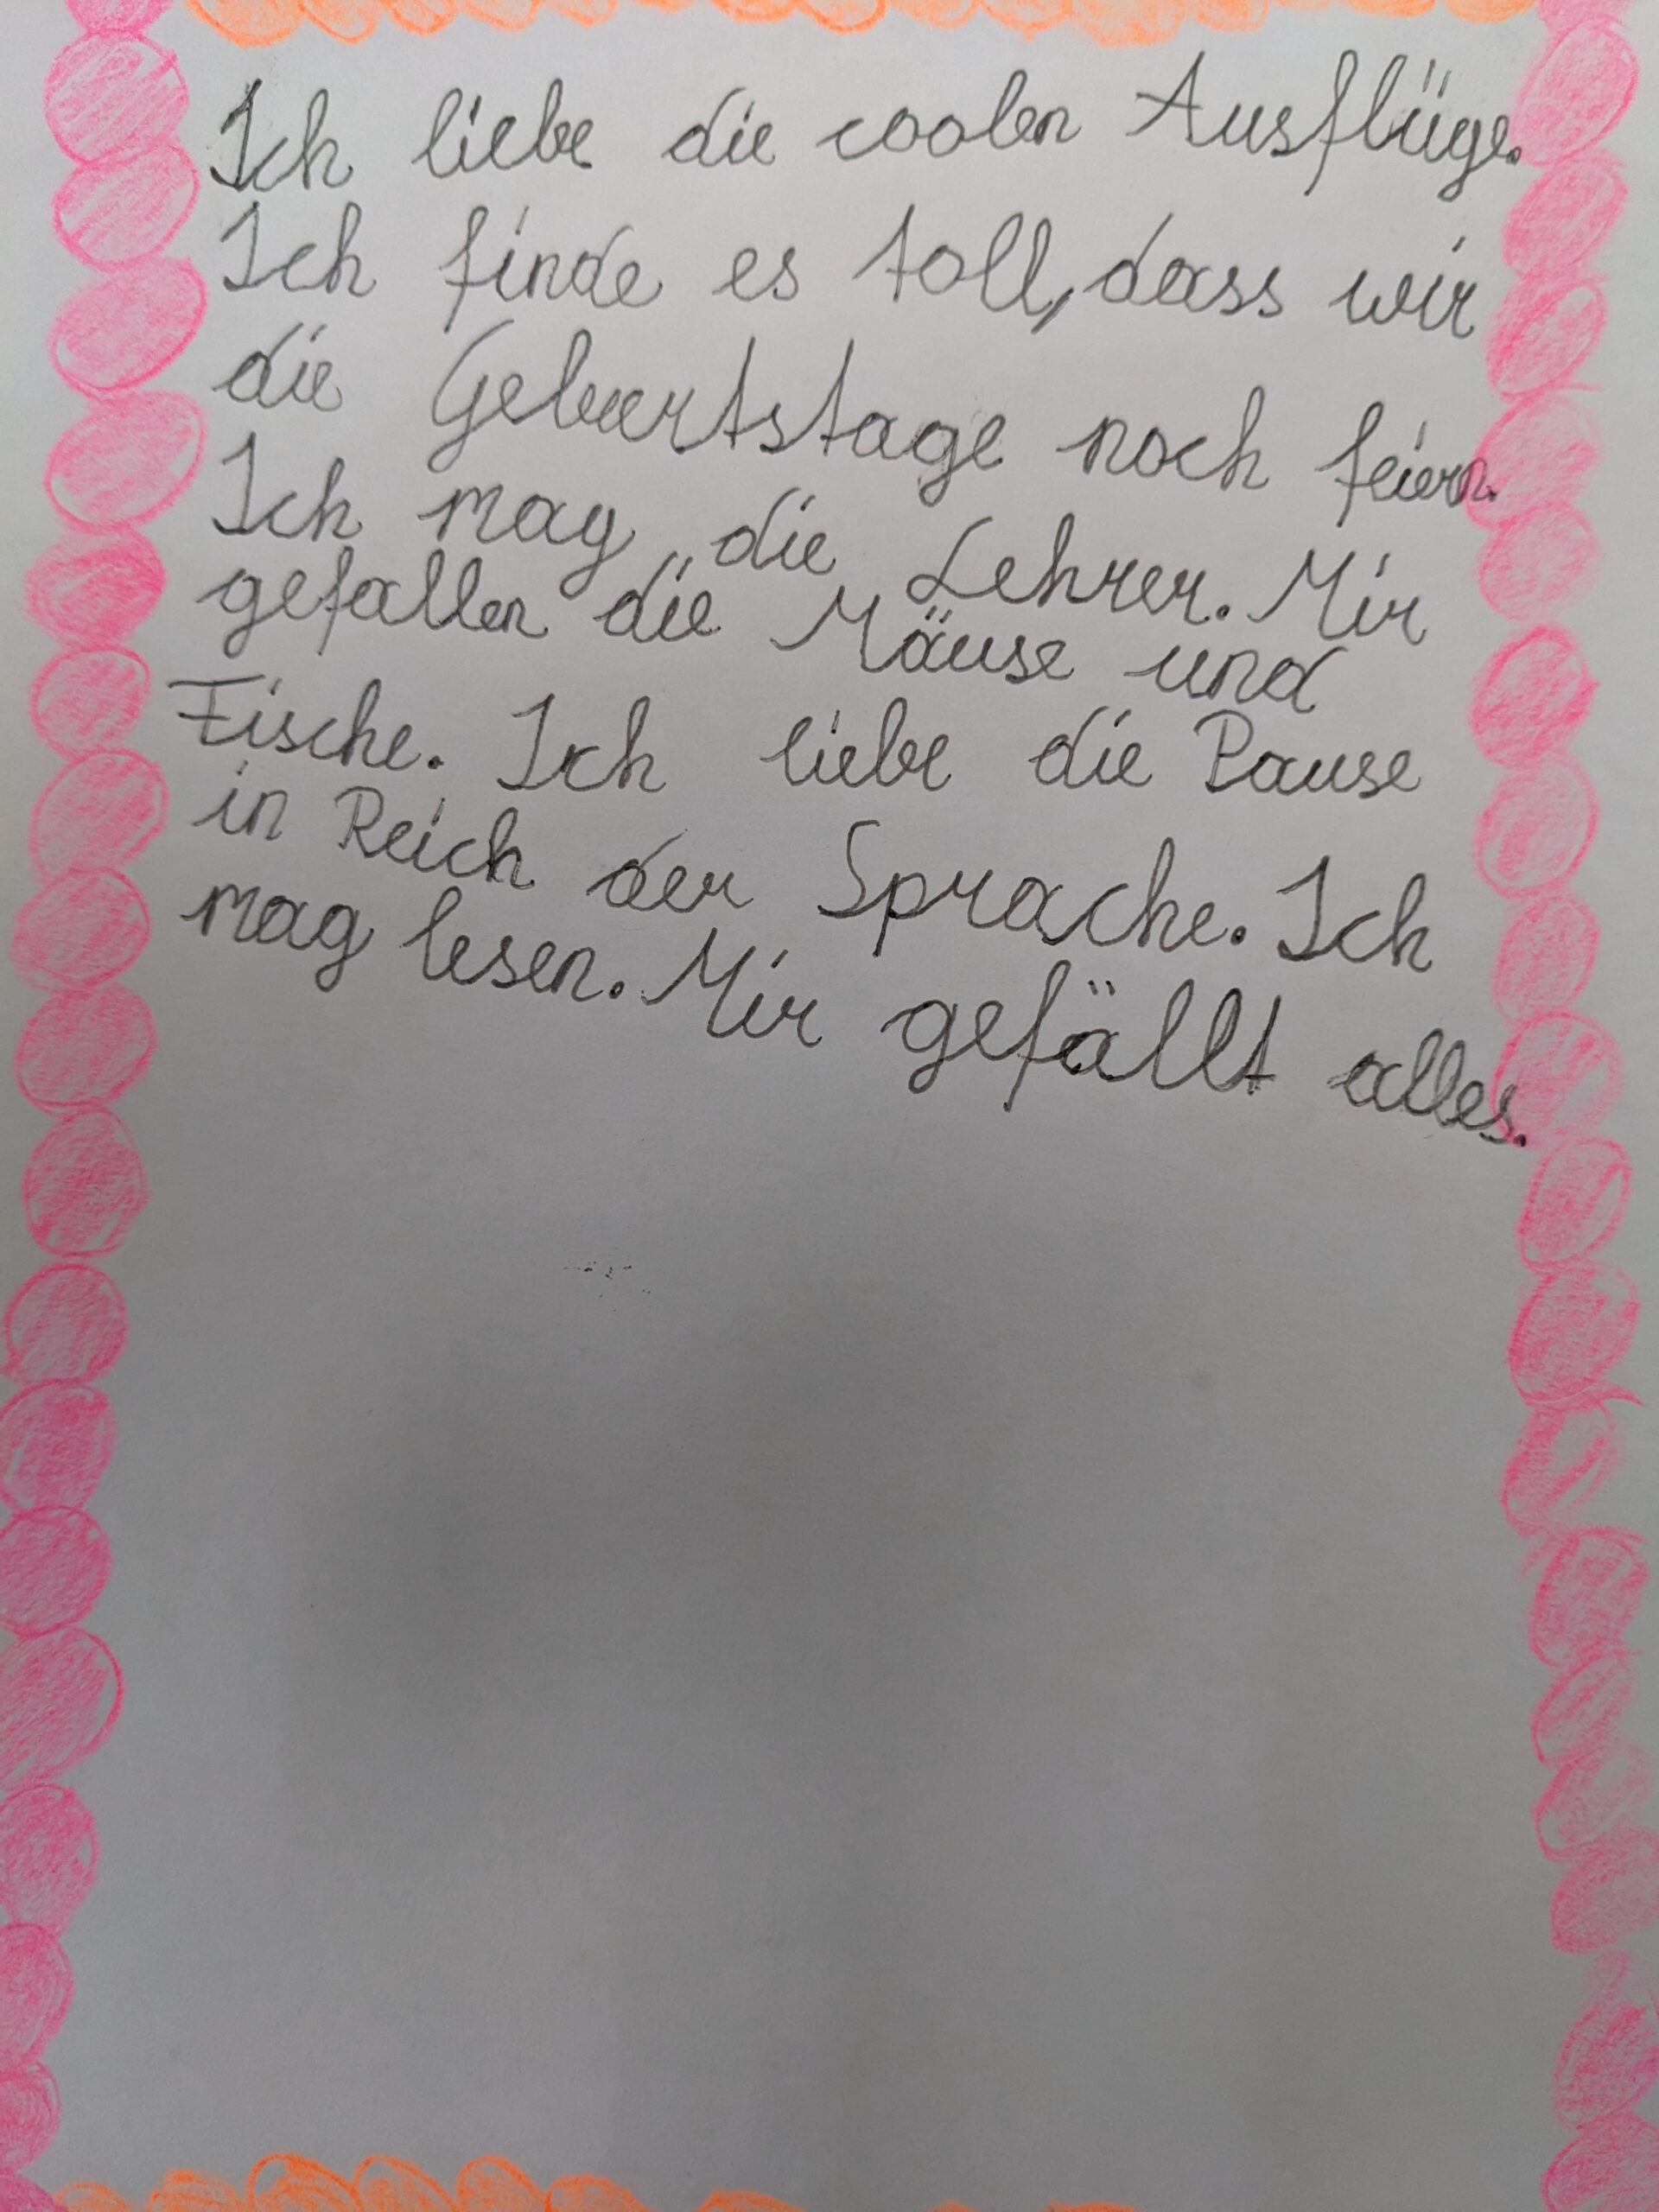 Ich liebe die coolen Ausflüge.
Ich finde es toll, dass wir
die Geburtstage noch feiern.
Ich mag die Lehrer. Mir
gefallen die Mäuse und
Fische. Ich liebe die Pause
in Reich der Sprache. Ich
mag lesen. Mir gefällt alles.